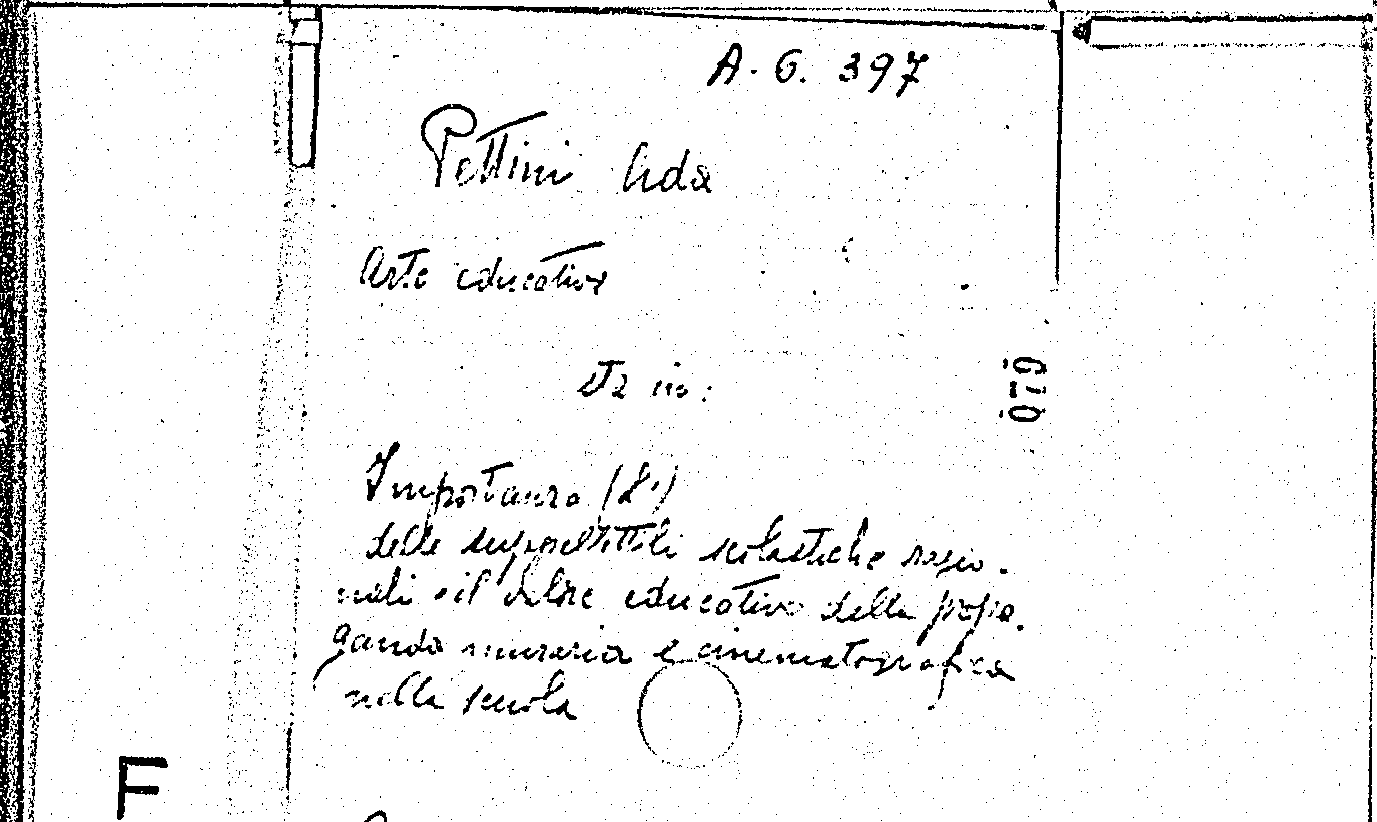 A. G. 397
Pettini Aida
Arte educativa
sta in:
Importanza (L')
delle suppellettili scolastiche razio-
nali e il valore educativo della propa-
ganda muraria e cinematografica
nella scuola
F